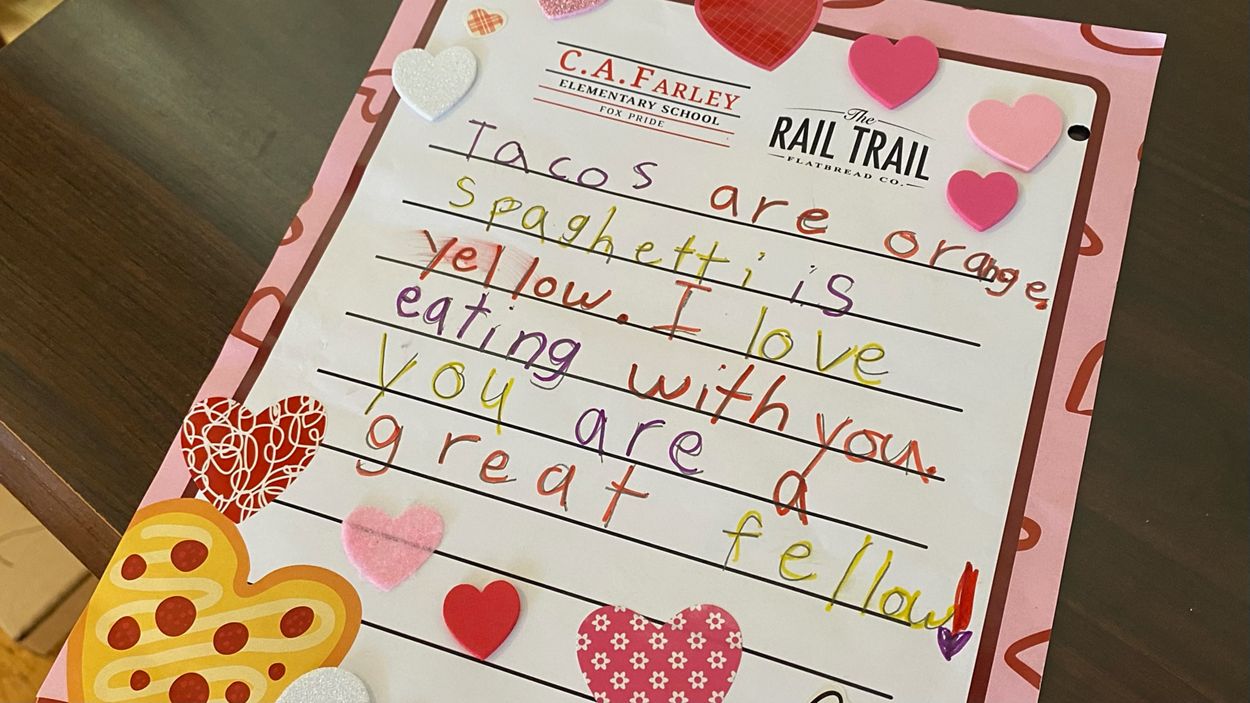 C.A.FARLEY
ELEMENTARY SCHOOL
FOX PRIDE
The
RAIL TRAIL
FLATBREAD CO.
Tacos are orange.
spaghetti is
yellow. I love
eating with you.
you are a
great fellow!